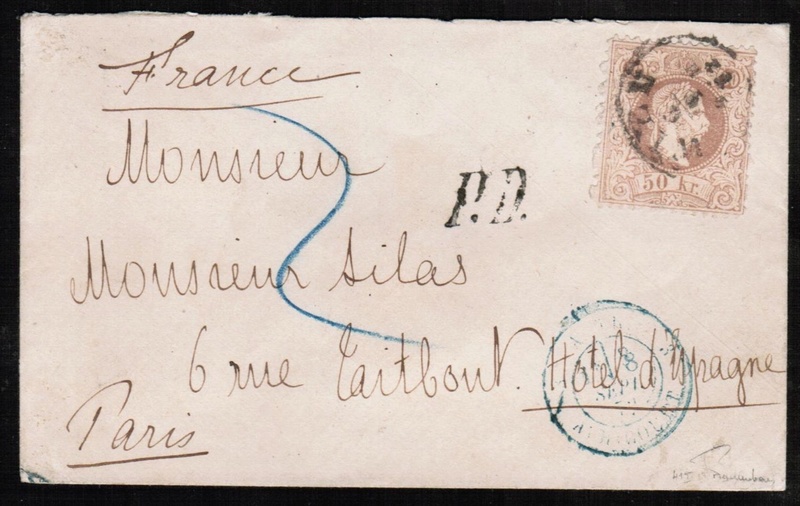 France
Monsieur
P.D.
50 kr.
Monsieur Silas
6 rue Taitbout. Hotel d'Espagne
Paris